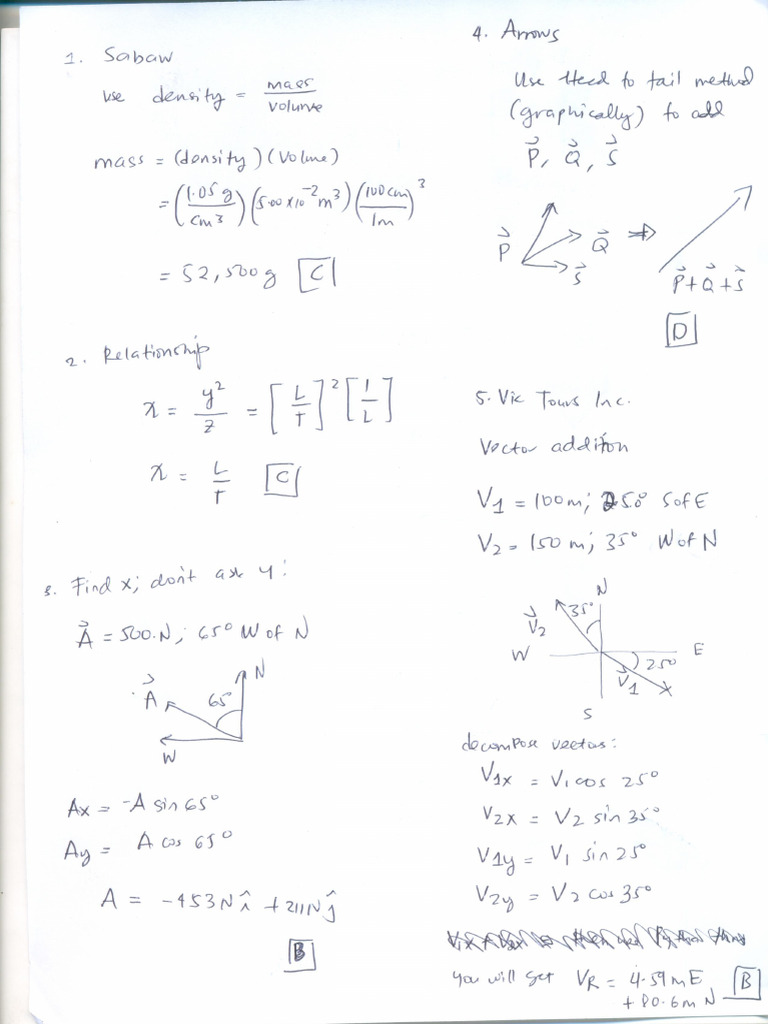 1. Sabaw
use density = mass / volume
mass = (density)(volume)
= (1.05 g / cm³) (5.00 x 10⁻² m³) (100 cm / 1m)³
= 52,500 g [C]
2. Relationship
x = y² / z = [L / T]² [1 / L]
x = L / T [C]
3. Find x; don't ask y:
A⃗ = 500. N; 65° W of N
N
A⃗ 65°
W
Ax = -A sin 65°
Ay = A cos 65°
A = -453 N î + 211 N ĵ
[B]
4. Arrows
Use Head to tail method
(graphically) to add
P⃗, Q⃗, S⃗
P⃗ Q⃗ S⃗ ⇒ P⃗ + Q⃗ + S⃗
[D]
5. Vic Tours Inc.
Vector addition
V1 = 100 m; 25.0° S of E
V2 = 150 m; 35° W of N
N
V⃗2 35°
W E
25°
V⃗1
S
decompose vectors:
V1x = V1 cos 25°
V2x = V2 sin 35°
V1y = V1 sin 25°
V2y = V2 cos 35°
You will get VR = 4.59 m E [B]
+ 80.6 m N